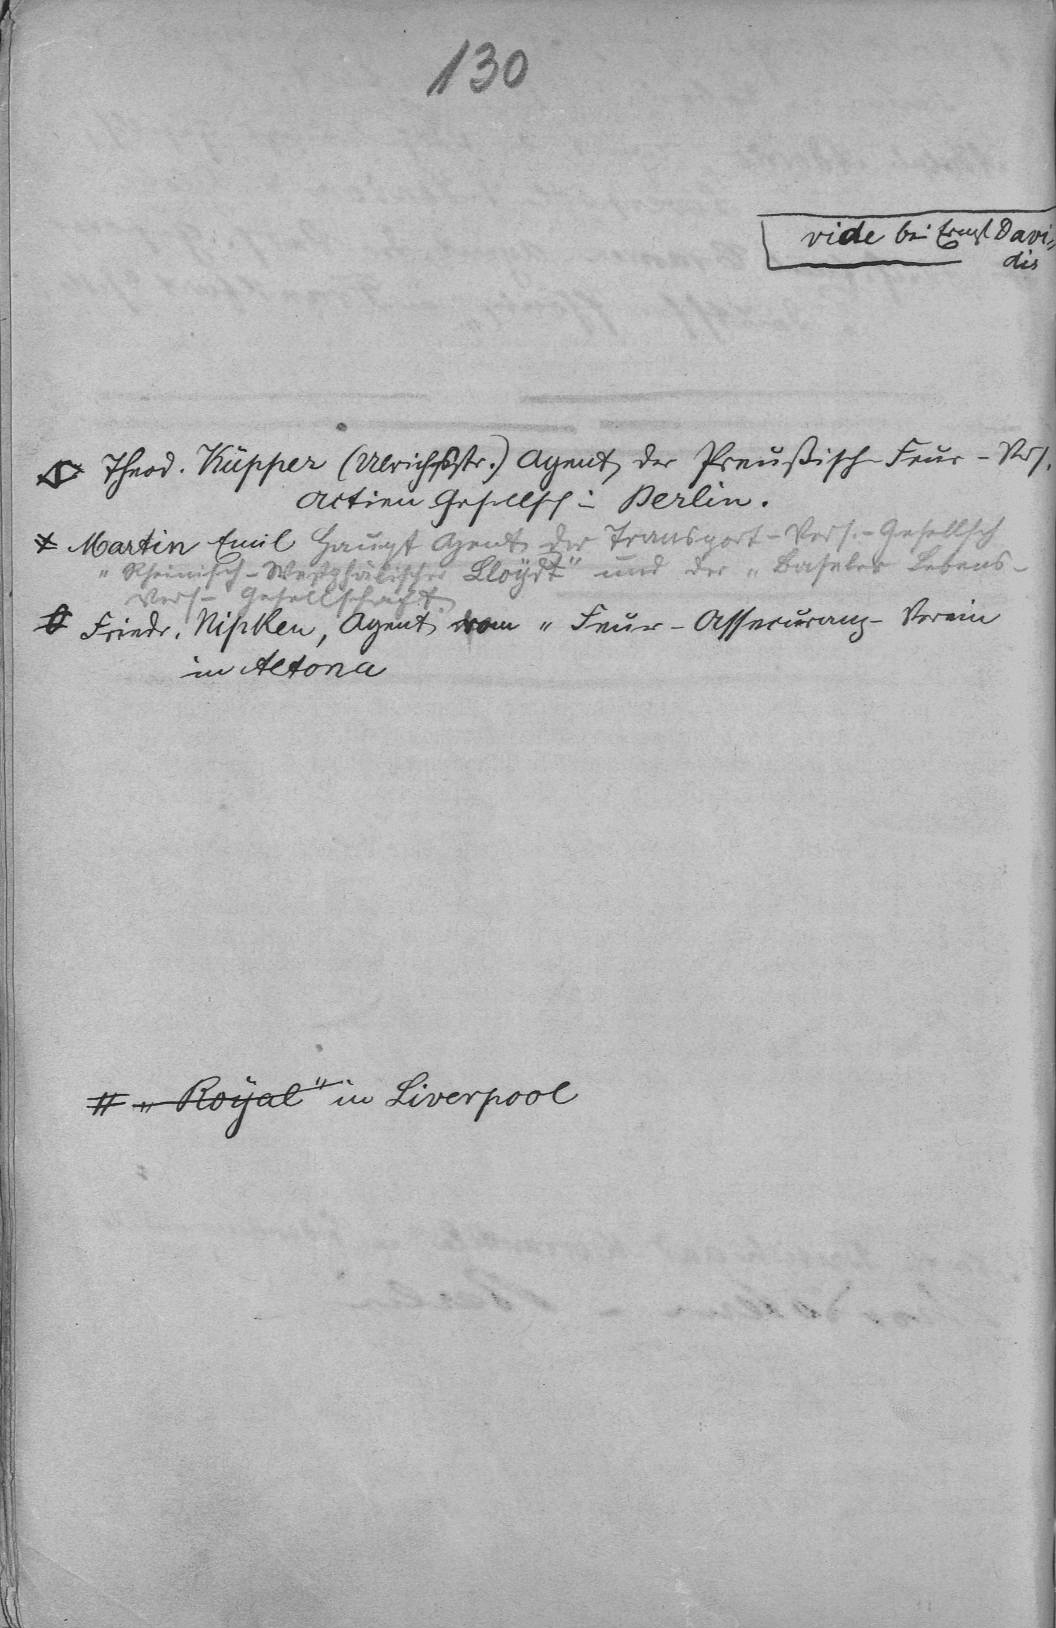 130
vide bei Ernst Davi-
dis
Theod. Küpper (Ulrichsstr.) Agent der Preußisch Feuer-Vers.
Actien Gesellsch in Berlin.
Martin Emil Haupt Agent der Transport-Vers.-Gesellsch
„Rheinisch-Westphälischer Lloÿdt" und der „Baseler Lebens-
Vers- Gesellschaft
Friedr. Nipken, Agent vom „Feuer-Assecuranz-Verein
in Altona
„Roÿal" in Liverpool